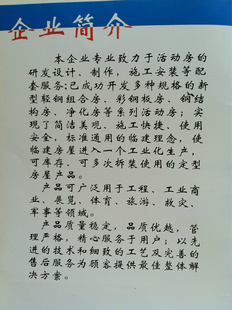 企业简介
本企业专业致力于活动房的
研发设计、制作，施工安装等配
套服务;已成功开发多种规格的新
型轻钢组合房、彩钢板房、钢结
构房、净化房等系列活动房；实
现了简洁美观、施工快捷、使用
安全，标准通用的临建理念，使
临建房屋进入一个工业化生产，
可库存、可多次拆装使用的定型
房屋产品。
产品可广泛用于工程、工业商
业、展览、体育、旅游、救灾、
军事等领域。
产品质量稳定，品质优越，管
理严格，精心服务于用户；以先
进的技术和细致的工艺及完善的
售后服务为顾客提供最佳整体解
决方案。